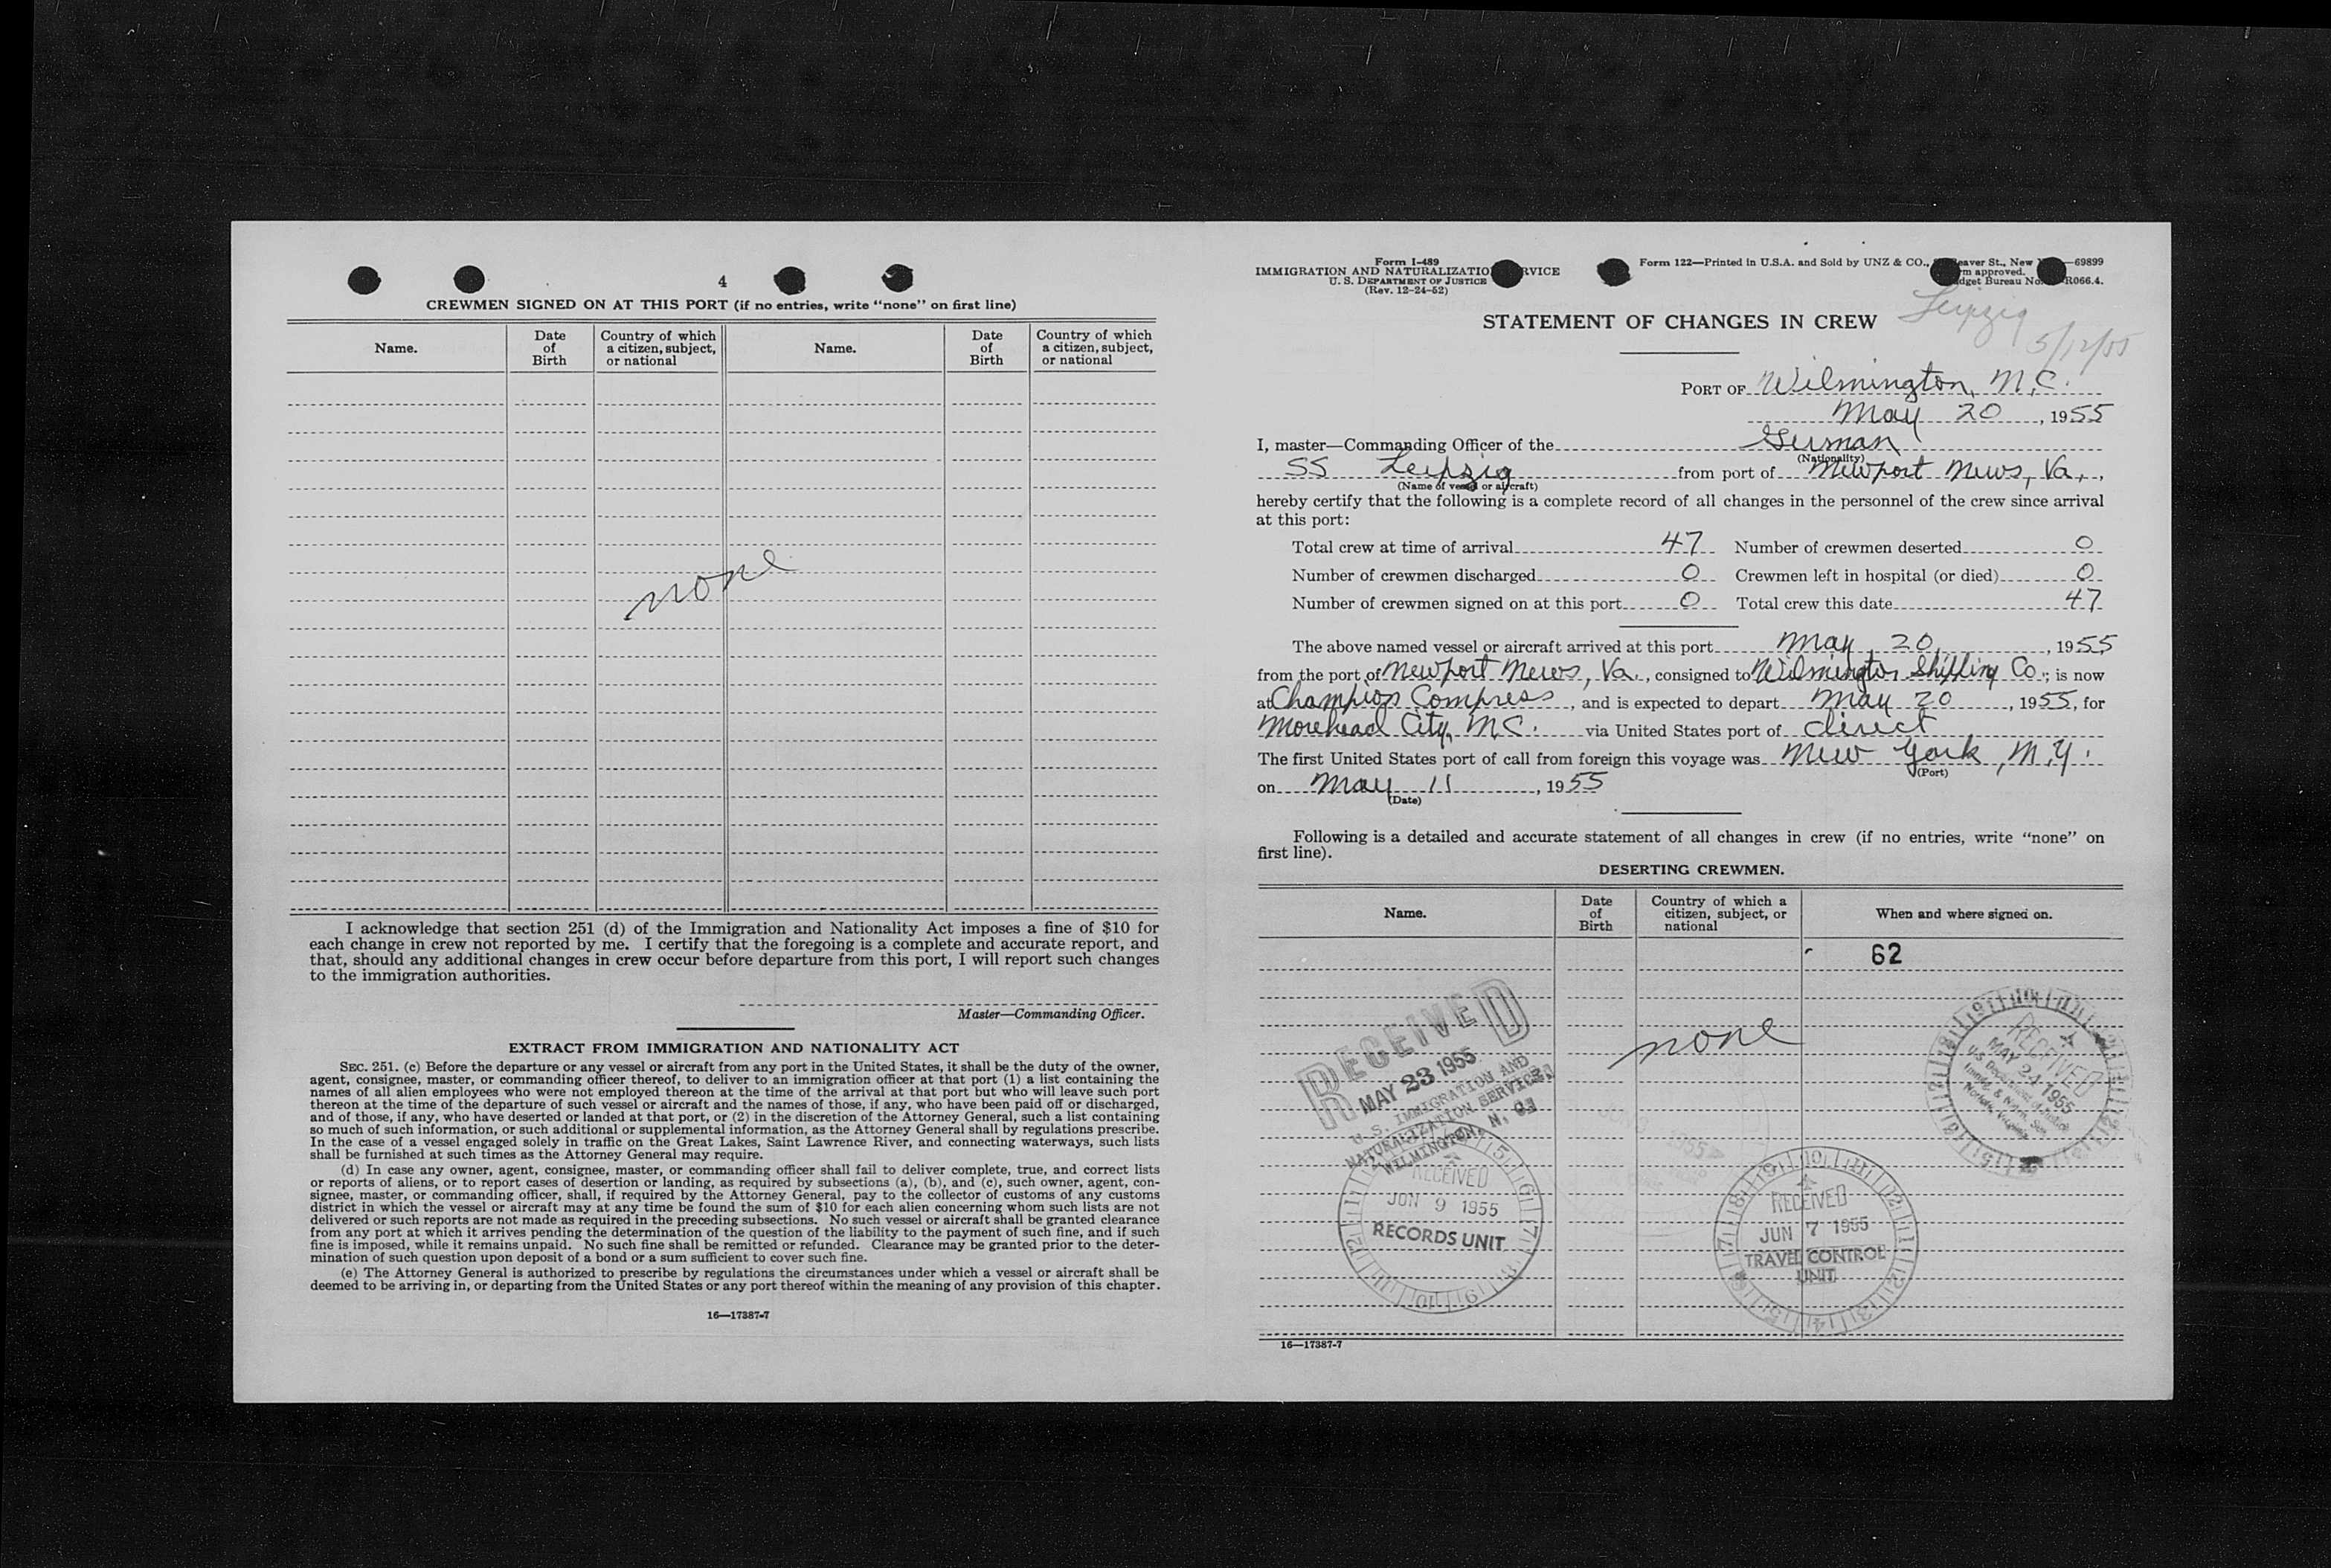 4
CREWMEN SIGNED ON AT THIS PORT (if no entries, write "none" on first line)
Name. Date of Birth Country of which a citizen, subject, or national Name. Date of Birth Country of which a citizen, subject, or national
none
I acknowledge that section 251 (d) of the Immigration and Nationality Act imposes a fine of $10 for
each change in crew not reported by me. I certify that the foregoing is a complete and accurate report, and
that, should any additional changes in crew occur before departure from this port, I will report such changes
to the immigration authorities.
Master—Commanding Officer.
EXTRACT FROM IMMIGRATION AND NATIONALITY ACT
SEC. 251. (c) Before the departure or any vessel or aircraft from any port in the United States, it shall be the duty of the owner,
agent, consignee, master, or commanding officer thereof, to deliver to an immigration officer at that port (1) a list containing the
names of all alien employees who were not employed thereon at the time of the arrival at that port but who will leave such port
thereon at the time of the departure of such vessel or aircraft and the names of those, if any, who have been paid off or discharged,
and of those, if any, who have deserted or landed at that port, or (2) in the discretion of the Attorney General, such a list containing
so much of such information, or such additional or supplemental information, as the Attorney General shall by regulations prescribe.
In the case of a vessel engaged solely in traffic on the Great Lakes, Saint Lawrence River, and connecting waterways, such lists
shall be furnished at such times as the Attorney General may require.
(d) In case any owner, agent, consignee, master, or commanding officer shall fail to deliver complete, true, and correct lists
or reports of aliens, or to report cases of desertion or landing, as required by subsections (a), (b), and (c), such owner, agent, con-
signee, master, or commanding officer, shall, if required by the Attorney General, pay to the collector of customs of any customs
district in which the vessel or aircraft may at any time be found the sum of $10 for each alien concerning whom such lists are not
delivered or such reports are not made as required in the preceding subsections. No such vessel or aircraft shall be granted clearance
from any port at which it arrives pending the determination of the question of the liability to the payment of such fine, and if such
fine is imposed, while it remains unpaid. No such fine shall be remitted or refunded. Clearance may be granted prior to the deter-
mination of such question upon deposit of a bond or a sum sufficient to cover such fine.
(e) The Attorney General is authorized to prescribe by regulations the circumstances under which a vessel or aircraft shall be
deemed to be arriving in, or departing from the United States or any port thereof within the meaning of any provision of this chapter.
16—17387-7
Form I-489
IMMIGRATION AND NATURALIZATIO RVICE
U. S. DEPARTMENT OF JUSTICE
(Rev. 12-24-52)
Form 122—Printed in U.S.A. and Sold by UNZ & CO., eaver St., New —69899
rm approved.
dget Bureau No. R066.4.
Leipzig
5/12/55
STATEMENT OF CHANGES IN CREW
PORT OF Wilmington, N.C.
May 20, 1955
I, master—Commanding Officer of the German
(Nationality)
SS Leipzig from port of Newport News, Va.,
(Name of vessel or aircraft)
hereby certify that the following is a complete record of all changes in the personnel of the crew since arrival
at this port:
Total crew at time of arrival 47 Number of crewmen deserted 0
Number of crewmen discharged 0 Crewmen left in hospital (or died) 0
Number of crewmen signed on at this port 0 Total crew this date 47
The above named vessel or aircraft arrived at this port May 20, 1955
from the port of Newport News, Va., consigned to Wilmington Shipping Co.; is now
at Champion Compress, and is expected to depart May 20, 1955, for
Morehead City, N.C. via United States port of direct
The first United States port of call from foreign this voyage was New York, N.Y.
(Port)
on May 11, 1955
(Date)
Following is a detailed and accurate statement of all changes in crew (if no entries, write "none" on
first line).
DESERTING CREWMEN.
Name. Date of Birth Country of which a citizen, subject, or national When and where signed on.
62
none
RECEIVED
MAY 23 1955
U.S. IMMIGRATION AND
NATURALIZATION SERVICE
WILMINGTON, N. C.
RECEIVED
MAY 24 1955
U.S. Department of Justice
Immig. & Natz. Ser.
Norfolk, Virginia
RECEIVED
JUN 9 1955
RECORDS UNIT
RECEIVED
JUN 7 1955
TRAVEL CONTROL
UNIT
16—17387-7